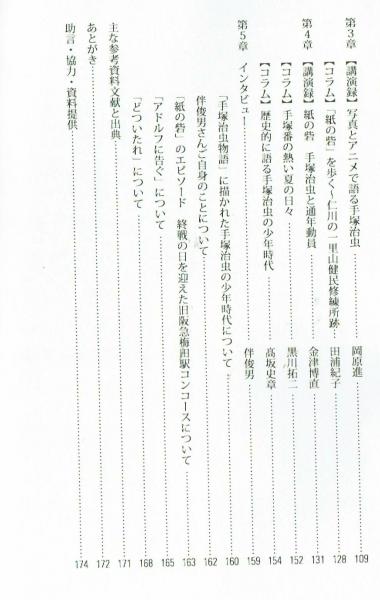 第3章 【講演録】写真とアニメで語る手塚治虫 岡原進 109
【コラム】「紙の砦」を歩く～仁川の一里山健民修練所跡… 田浦紀子 128
第4章 【講演録】紙の砦 手塚治虫と通年動員 金津博直 131
【コラム】手塚番の熱い夏の日々 黒川拓二 152
【コラム】歴史的に語る手塚治虫の少年時代 高坂史章 154
第5章 インタビュー 伴俊男 159
「手塚治虫物語」に描かれた手塚治虫の少年時代について 160
伴俊男さんご自身のことについて 162
「紙の砦」のエピソード 終戦の日を迎えた旧阪急梅田駅コンコースについて 163
「アドルフに告ぐ」について 165
「どついたれ」について 168
主な参考資料文献と出典 171
あとがき 172
助言・協力・資料提供 174